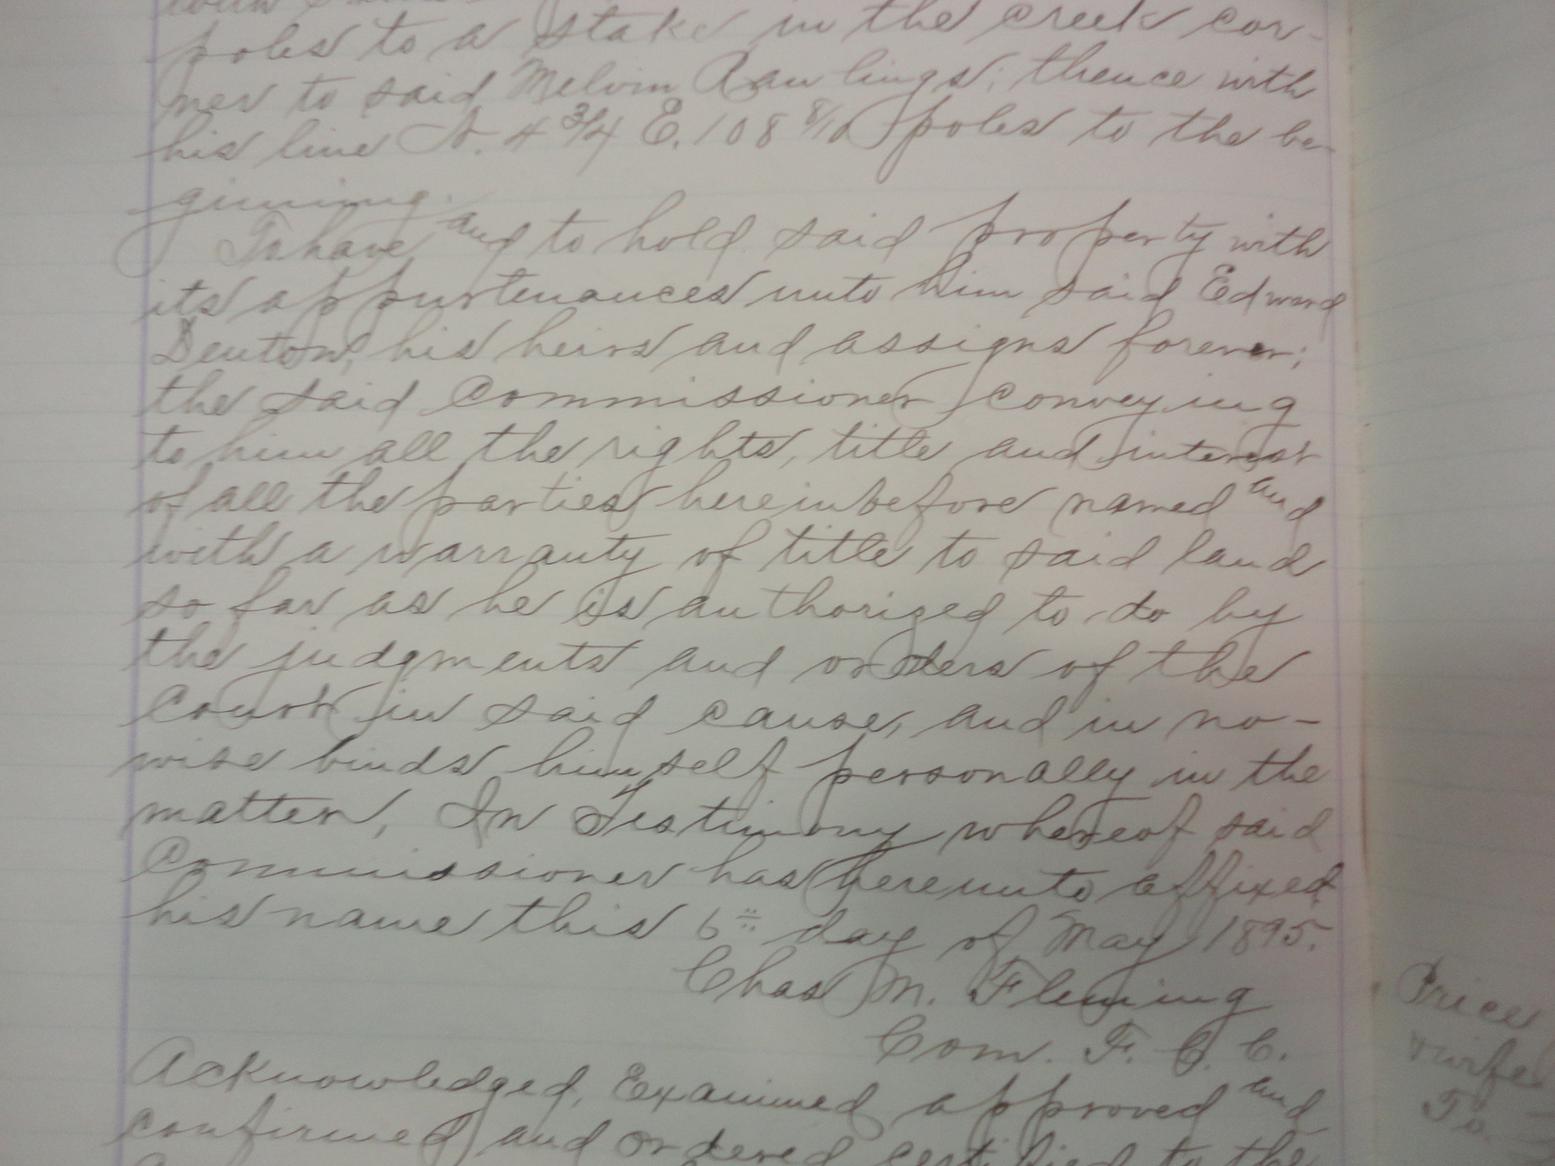 poles to a stake in the creek cor-
ner to said Melvin Rawlings; thence with
his line N. 4 3/4 E. 108 8/10 poles to the be-
ginning.
To have and to hold said property with
its appurtenances unto him said Edward
Denton, his heirs and assigns forever;
the said Commissioner conveying
to him all the rights, title and interest
of all the parties hereinbefore named and
with a warranty of title to said land
so far as he is authorized to do by
the judgments and orders of the
Court in said cause, and in no-
wise binds himself personally in the
matter. In Testimony whereof said
Commissioner has hereunto affixed
his name this 6th day of May 1895.
Chas M. Fleming
Com. F. C. C.
Acknowledged, Examined approved and
confirmed and ordered certified to the
Price
wife
To